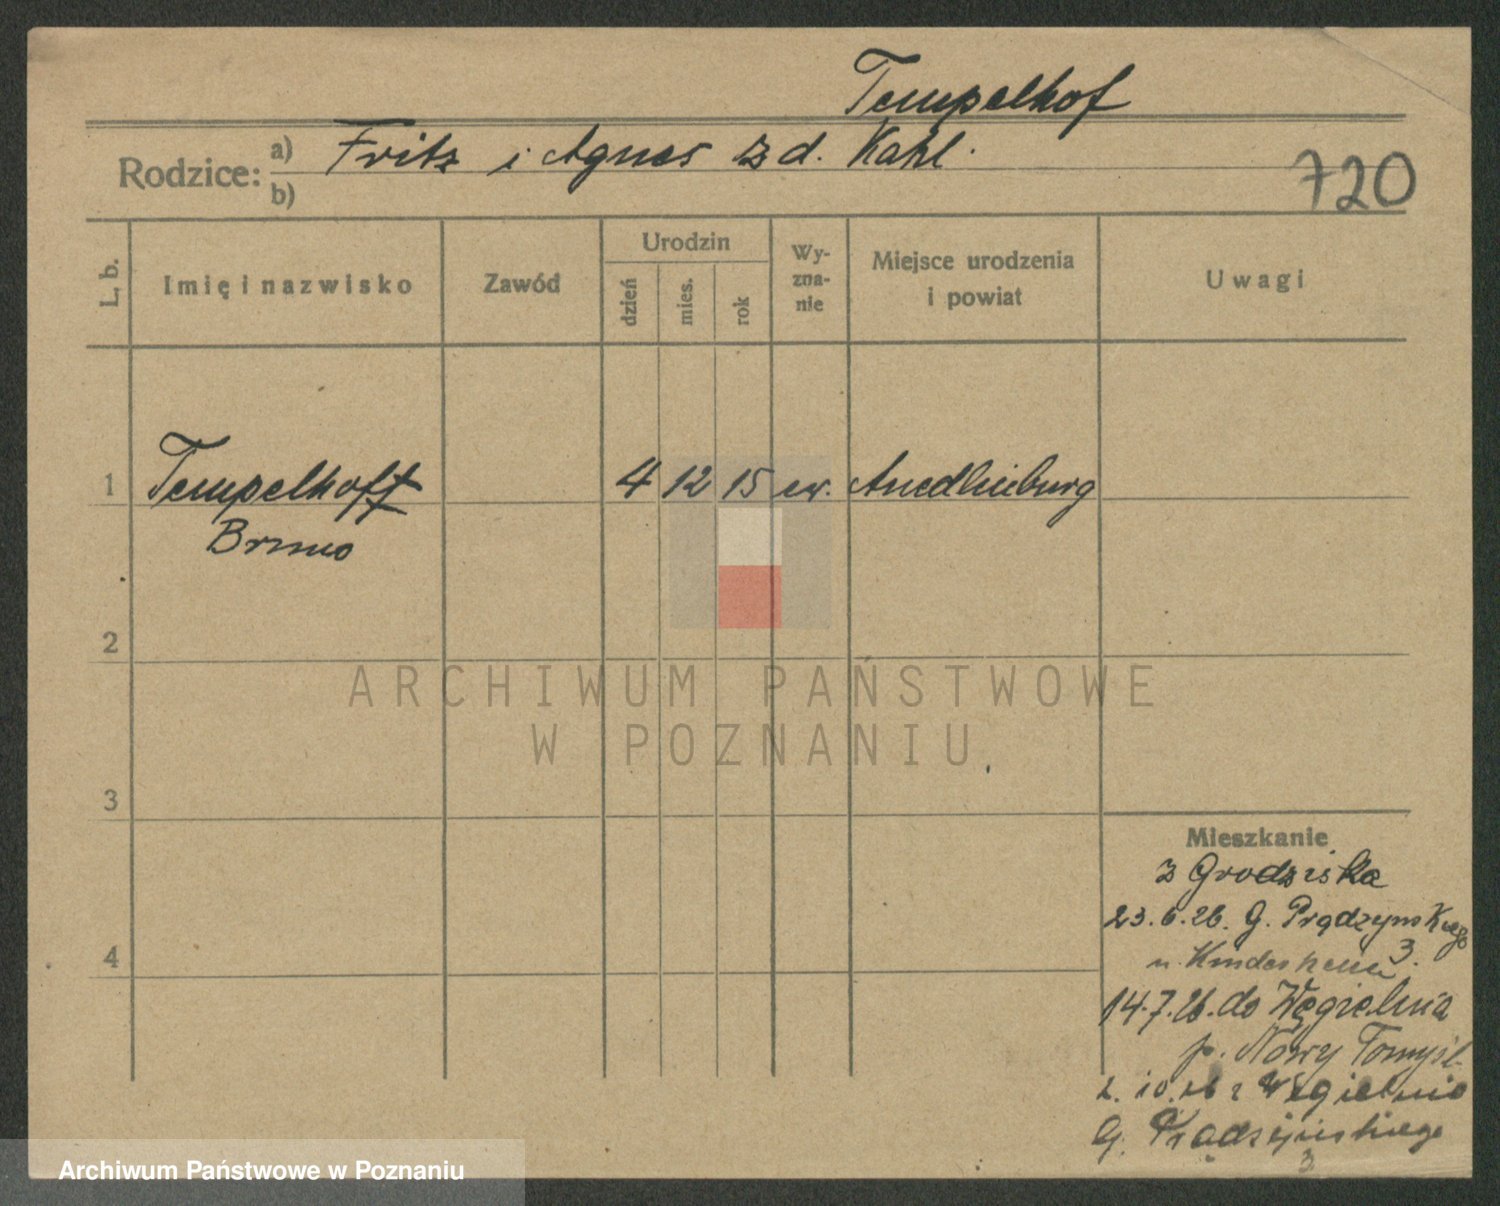 Tempelhof
Rodzice: a) Fritz i Agnes z d. Kahl.
b)
720
L. b. Imię i nazwisko Zawód Urodzin dzień mies. rok Wy-zna-nie Miejsce urodzenia i powiat Uwagi
1 Tempelhoff 4 12 15 ew. Quedlinburg
Bruno
2
ARCHIWUM PAŃSTWOWE
W POZNANIU
3
Mieszkanie
z Grodziska
23.6.26. G. Prądzyńskiego
3.
4
14.7.26. do Węgielnia
p. Nowy Tomyśl
2.10.26 z Węgielnio
G. Prądzyńskiego
3
Archiwum Państwowe w Poznaniu